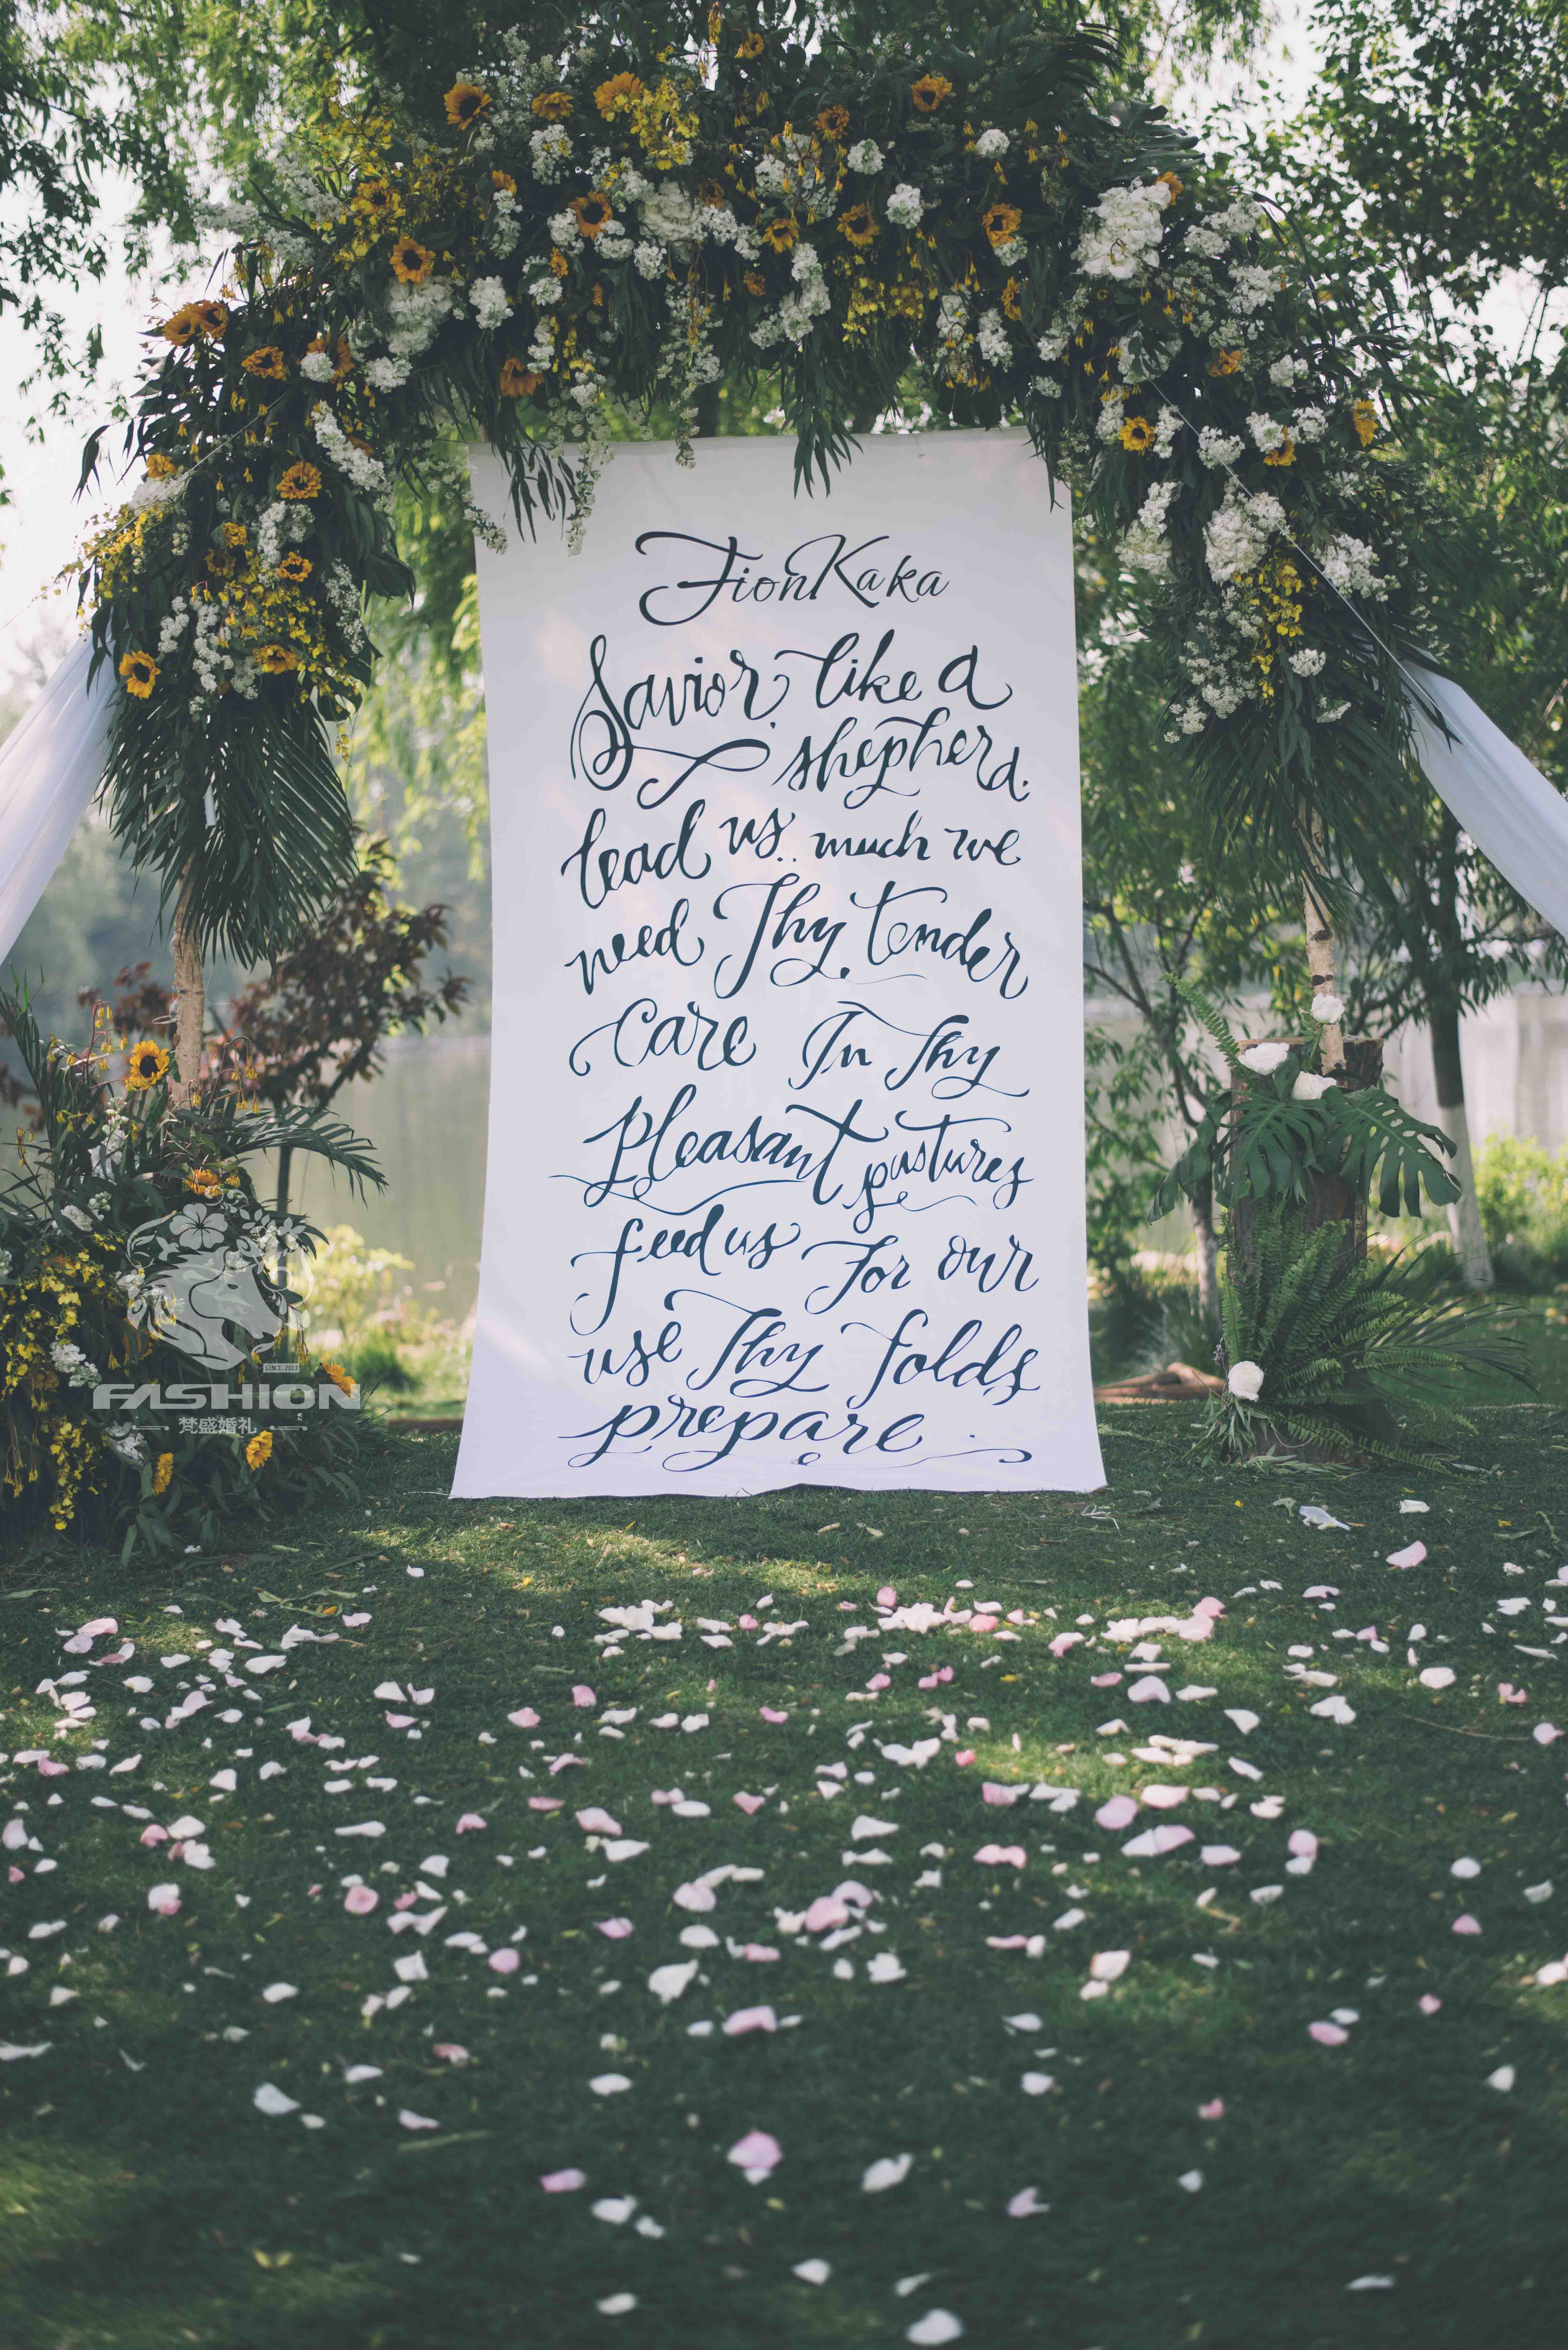 FionKaka
Savior, like a
shepherd.
lead us.. much we
need Thy tender
Care In Thy
pleasant pastures
feed us For our
use Thy folds
prepare.
SINCE.2013
FASHION
梵盛婚礼